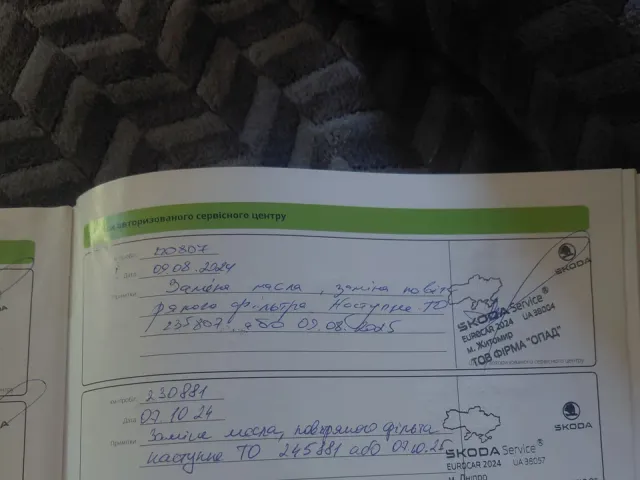 авторизованого сервісного центру
Дата 09.08.2024
Примітки Заміна масла, заміна повіт
ряного фільтра Наступне ТО
235807 або 09.08.2025
SKODA
SKODA Service®
EUROCAR 2024 UA 38004
м. Житомир
ТОВ ФІРМА "ОПАД"
авторизованого сервісного центру
контролю: 230881
Дата 07 10 24
Примітки Заміна масла, повітряного фільтра
наступне ТО 245881 або 07.10.25
SKODA
SKODA Service®
EUROCAR 2024 UA 36057
м. Дніпро